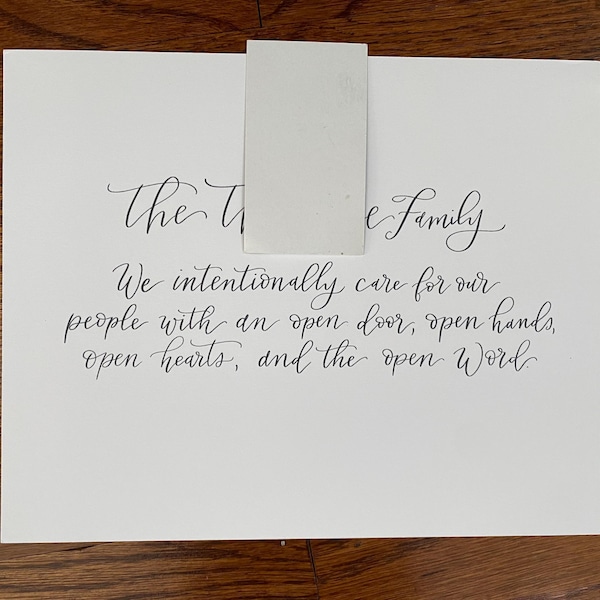 The T e Family
We intentionally care for our
people with an open door, open hands,
open hearts, and the open Word.